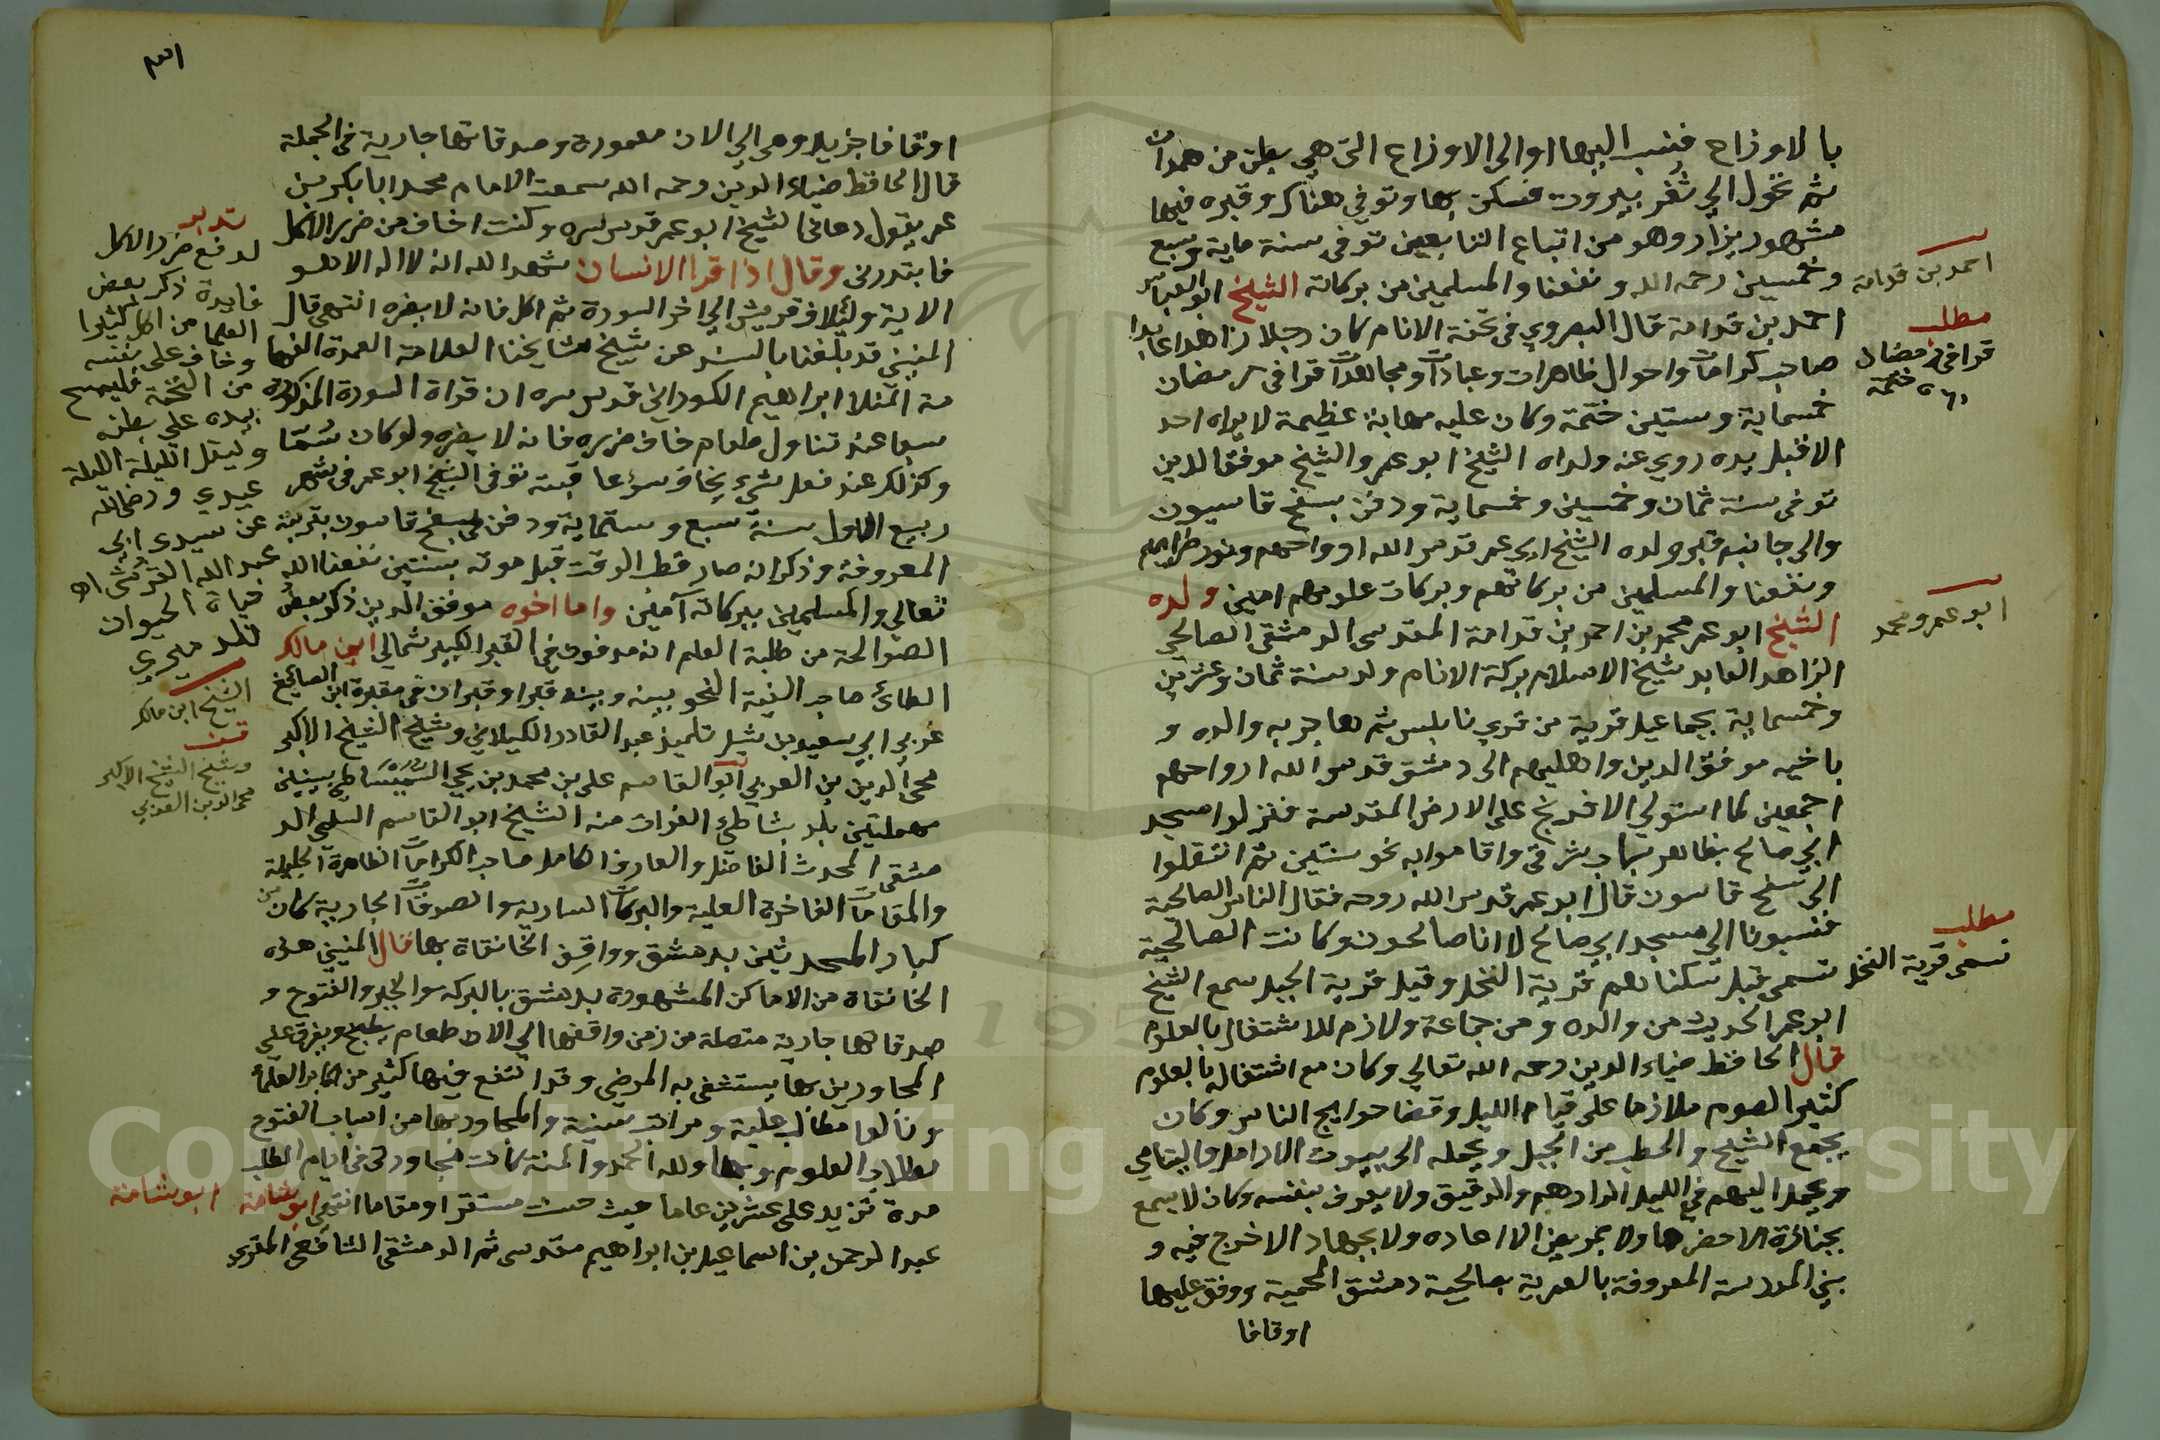 بالاوزاع فنسب اليها اوالى الاوزاع التى هي بطن من همدان
ثم تحول الي ثغر بيروت فسكن بها وتوفي هناك وقبره فيها
مشهور يزار وهو من اتباع التابعين توفي سنة ماية وسبع
وخمسين رحمه الله ونفعنا والمسلمين من بركاته الشيخ ابو العباس
احمد بن قدامة
احمد بن قدامة قال البصروي في تحفة الانام كان رجلا زاهدا عابدا
مطلب
صاحب كرامات واحوال ظاهرات وعبادات ومجاهدات قرا في رمضان
قرا في رمضان
٥٦٠ ختمة
خمسماية وستين ختمة وكان عليه مهابة عظيمة لا يراه احد
الا قبل يده روي عنه ولداه الشيخ ابو عمر والشيخ موفق الدين
توفى سنة ثمان وخمسين وخمسماية ودفن بسفح قاسيون
والى جانبه قبر ولده الشيخ ابي عمر قدس الله ارواحهم ونور ضرايحهم
ونفعنا والمسلمين من بركاتهم وبركات علومهم امين ولده
ابو عمر ومحمد
الشيخ ابو عمر محمد بن احمد بن قدامة المقدسى الدمشقى الصالحي
الزاهد العابد شيخ الاسلام بركة الانام ولد سنة ثمان وعشرين
وخمسماية بجماعيل قرية من قري نابلس ثم هاجر به والده و
باخيه موفق الدين واهليهم الى دمشق قدس الله ارواحهم
اجمعين لما استولي الافرنج على الارض المقدسة فنزلوا مسجد
ابي صالح بظاهر باب شرقى واقاموا به نحو سنتين ثم انتقلوا
الى سفح قاسون قال ابو عمر قدس الله روحه فقال الناس الصالحية
فنسبونا الي مسجد ابي صالح لا انا صالحون وكانت الصالحية
مطلب
تسمى قرية النخل
تسمى قبل سكناهم قرية النخل وقيل قرية الجبل سمع الشيخ
ابو عمر الحديث من والده ومن جماعة ولازم للاشتغال بالعلوم
قال الحافظ ضياء الدين رحمه الله تعالي وكان مع اشتغاله بالعلوم
كثير الصوم ملازما على قيام الليل وقضا حوايج الناس وكان
يجمع الشيح والحطب من الجبل ويحمله الى بيوت الارامل واليتامي
ويحمل اليهم في الليل الدراهم والدقيق ولا يعرف بنفسه وكان لا يسمع
بجنازة الا حضرها ولا بمريض الا عاده ولا بجهاد الا خرج فيه و
بني المدرسة المعروفة بالعمرية بصالحية دمشق المحمية ووقف عليها
اوقافا
اوقافا جزيلة وهي الي الان معمورة وصدقاتها جارية في الجملة
قال الحافظ ضياء الدين رحمه الله سمعت الامام محمد ابا بكر بن
عمر يقول دعانى الشيخ ابو عمر قدس سره وكنت اخاف من ضرر الاكل
فابتدرني وقال اذا قرا الانسان شهد الله انه لا اله الا هو
الاية ولئلاف قريش الي اخر السورة ثم اكل فانه لا يضره انتهي قال
المنيني قد بلغنا بالسند عن شيخ مشايخنا العلامة العمدة الفها
مة المنلا ابراهيم الكوراني قدس سره ان قراة السورة المذكورة
سبعا عند تناول طعام خاف ضرره فانه لا يضره ولو كان سُمّا
وكذلك عند فعل شيء يخاف سوء عاقبته توفى الشيخ ابو عمر فى شهر
ربيع الاول سنة سبع وستماية ودفن بسفح قاسون بتربته
المعروفة وذكر انه صار قطب الوقت قبل موته بسنتين نفعنا الله
تعالي والمسلمين ببركاته آمين واما اخوه موفق الدين ذكر بعض
الصوالحة من طلبة العلم انه مدفون في القبر الكبير شمالي ابن مالك
الطائى صاحب الفية النحو بينه وبينه قبر او قبران في مقبرة ابن الصائغ
غربي ابي سعيد بن شبل تلميذ عبد القادر الكيلاني وشيخ الشيخ الاكبر
محي الدين بن العربي ابو القاسم علي بن محمد بن يحي السُمَيْسَاطي بسينين
مهملتين بلد بشاطئ الفرات منه الشيخ ابو القاسم السلمي الد
مشقى المحدث الفاضل والعارف الكامل صاحب الكرامات الظاهرة الجليلة
والمقامات الفاخرة العلية والبركات السارية والصدقات الجارية كان من
كبار المحدثين بدمشق وواقف الخانقاة بها قال المنيني هذه
الخانقاة من الاماكن المشهورة بدمشق بالبركة والخير والفتوح و
صدقاتها جارية متصلة من زمن واقفها الي الان طعام يطبخ ويفرق على
المجاورين بها يستشفى به المرضي وقد انتفع فيها كثير من اكابر العلما
ونالوا مطالب علية ومراتب سنية والمجاور بها من اسباب الفتوح
لطلاب العلوم وبها ولله الحمد والمنة كانت مجاورتى في ايام الطلب
مدة تزيد على عشرين عاما حيث حسنت مستقرا ومقاما انتهي ابو شامة
عبد الرحمن بن اسماعيل بن ابراهيم مقدسى ثم الدمشقى الشافعي المقري
لدفع ضرر الاكل
فايدة ذكر بعض
العلما من اكل كثيرا
وخاف على نفسه
من التخمة فليمسح
بيده علي بطنه
وليقل الليلة الليلة
عيدي ورضي الله
عن سيدي ابي
عبد الله القرشي اه
حياة الحيوان
للدميري
الشيخ ابن مالك
وشيخ الشيخ الاكبر
محي الدين العربي
ابو شامة
Copyright © King Saud University